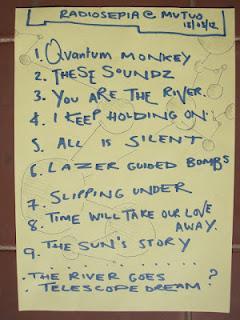 RADIOSEPIA @ MUTUO
18/05/12
1. QVANTUM MONKEY
2. THESE SOUNDZ
3. YOU ARE THE RIVER.
4. I KEEP HOLDING ON.
5. ALL IS SILENT
6. LAZER GUIDED BOMBS
7. SLIPPING UNDER
8. TIME WILL TAKE OUR LOVE
AWAY.
9. THE SUN'S STORY
. . . . . . .
. THE RIVER GOES ?
. TELESCOPE DREAM.